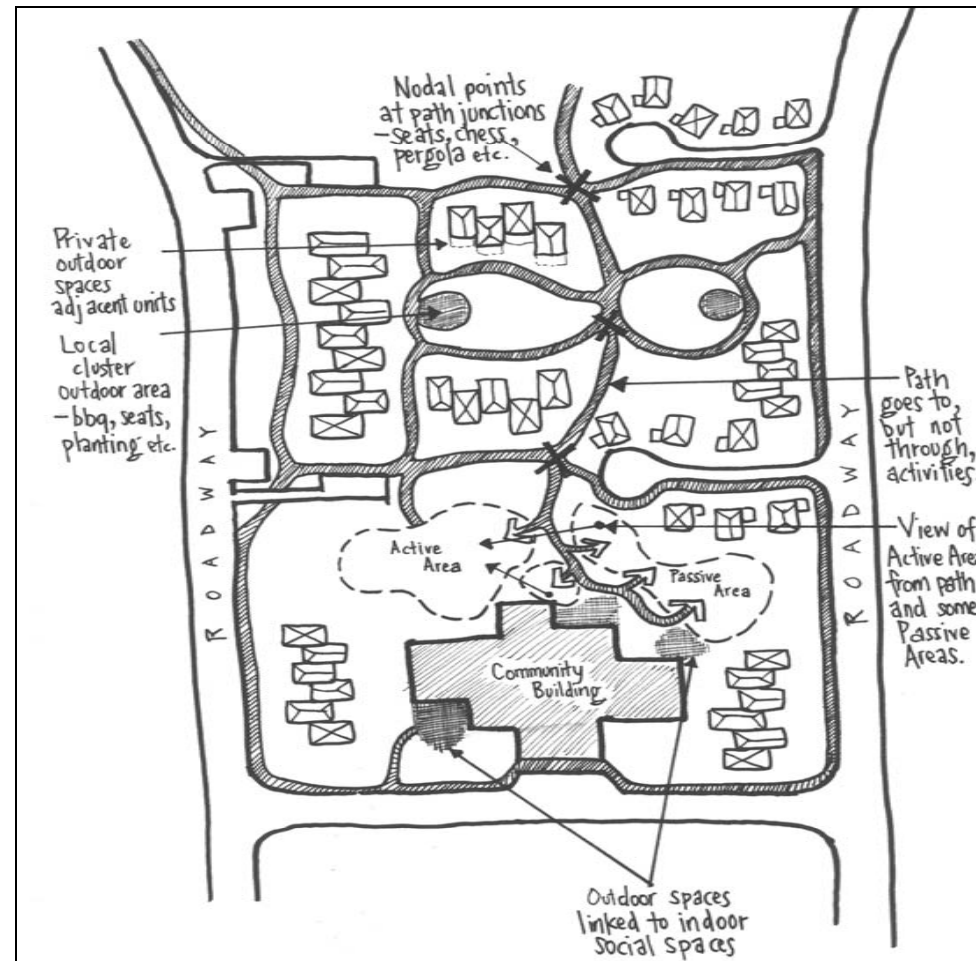 Nodal points
at path junctions
- seats, chess,
pergola etc.
Private
outdoor
spaces
adjacent units
Local
cluster
outdoor area
- bbq, seats,
planting etc.
ROADWAY
Path
goes to,
but not
through,
activities
ROADWAY
View of
Active Area
from path
and some
Passive
Areas.
Active
Area
Passive
Area
Community
Building
Outdoor spaces
linked to indoor
social spaces